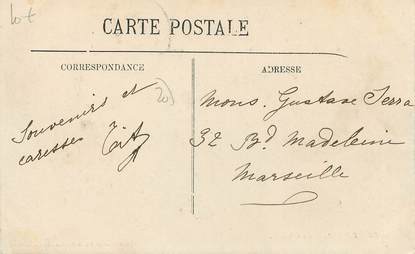 lot
CARTE POSTALE
CORRESPONDANCE
ADRESSE
20
Souvenirs et
caresses
Mons. Gustave Serra
32 Bd Madeleine
Marseille